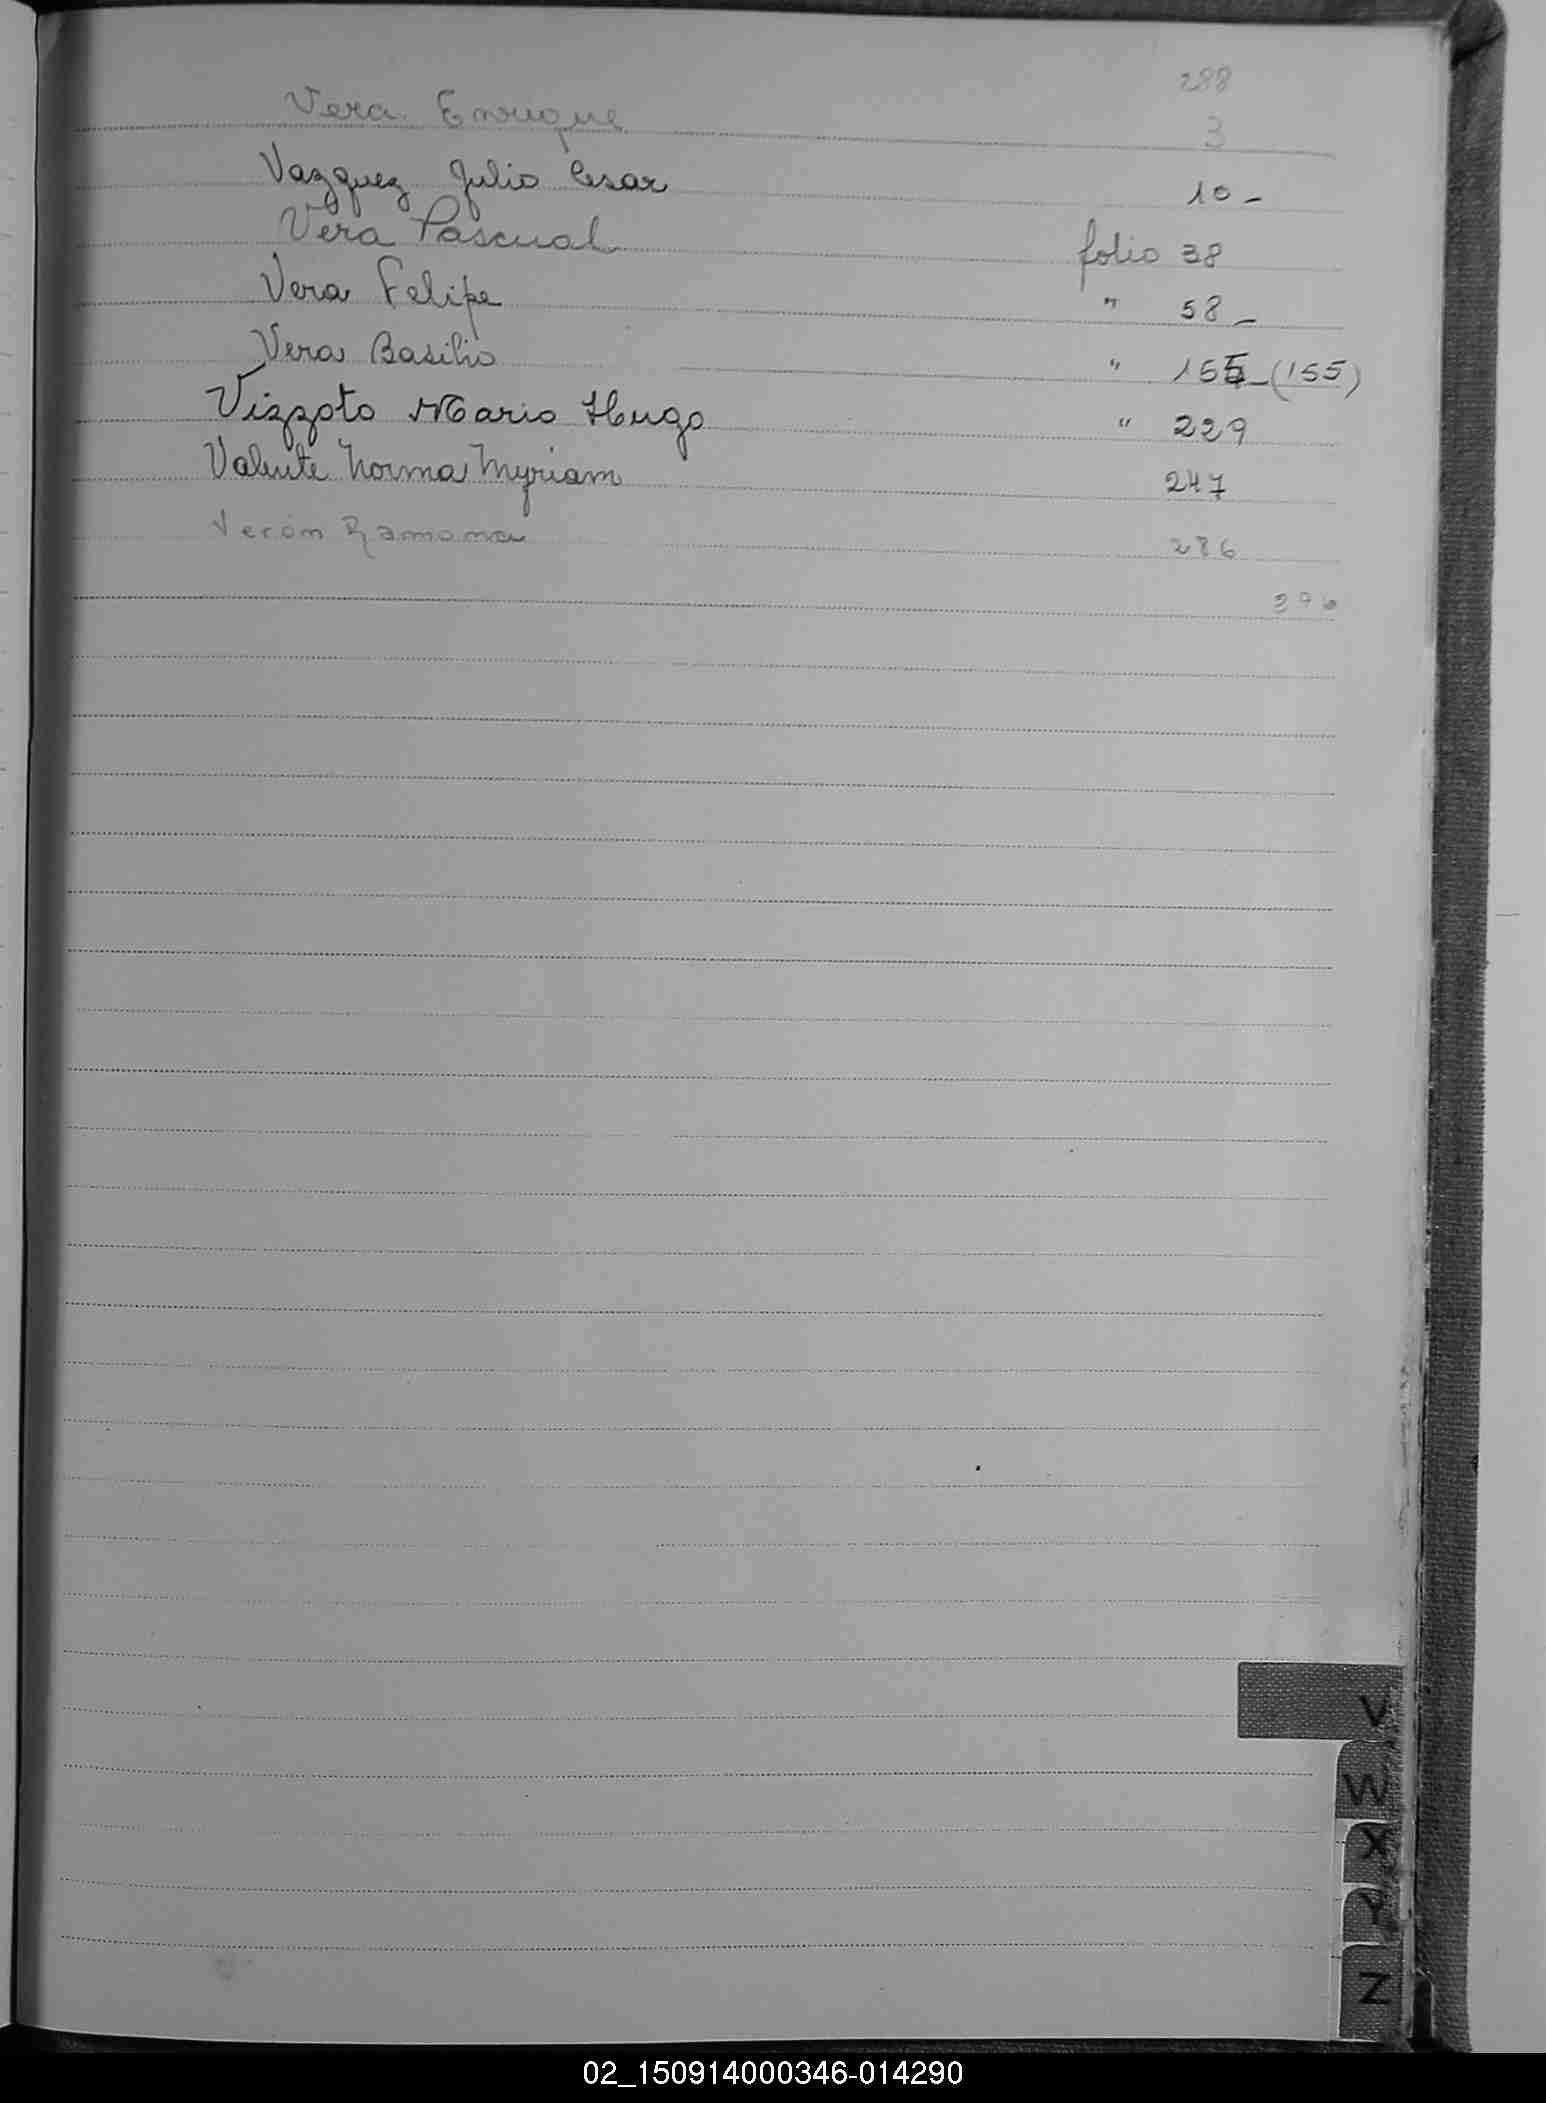 288
Vera Enrique 3
Vazquez Julio Cesar 10 -
Vera Pascual folio 38
Vera Felipe " 58 -
Vera Basilio " 155 - (155)
Vizzoto Mario Hugo " 229
Valente Norma Myriam 247
Verón Ramona 286
396
V
W
X
Y
Z
02_150914000346-014290